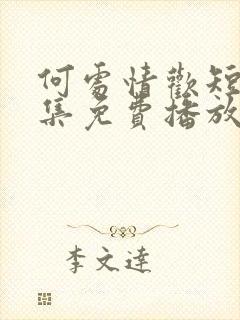 何處情歡短
集免費播放
李文達